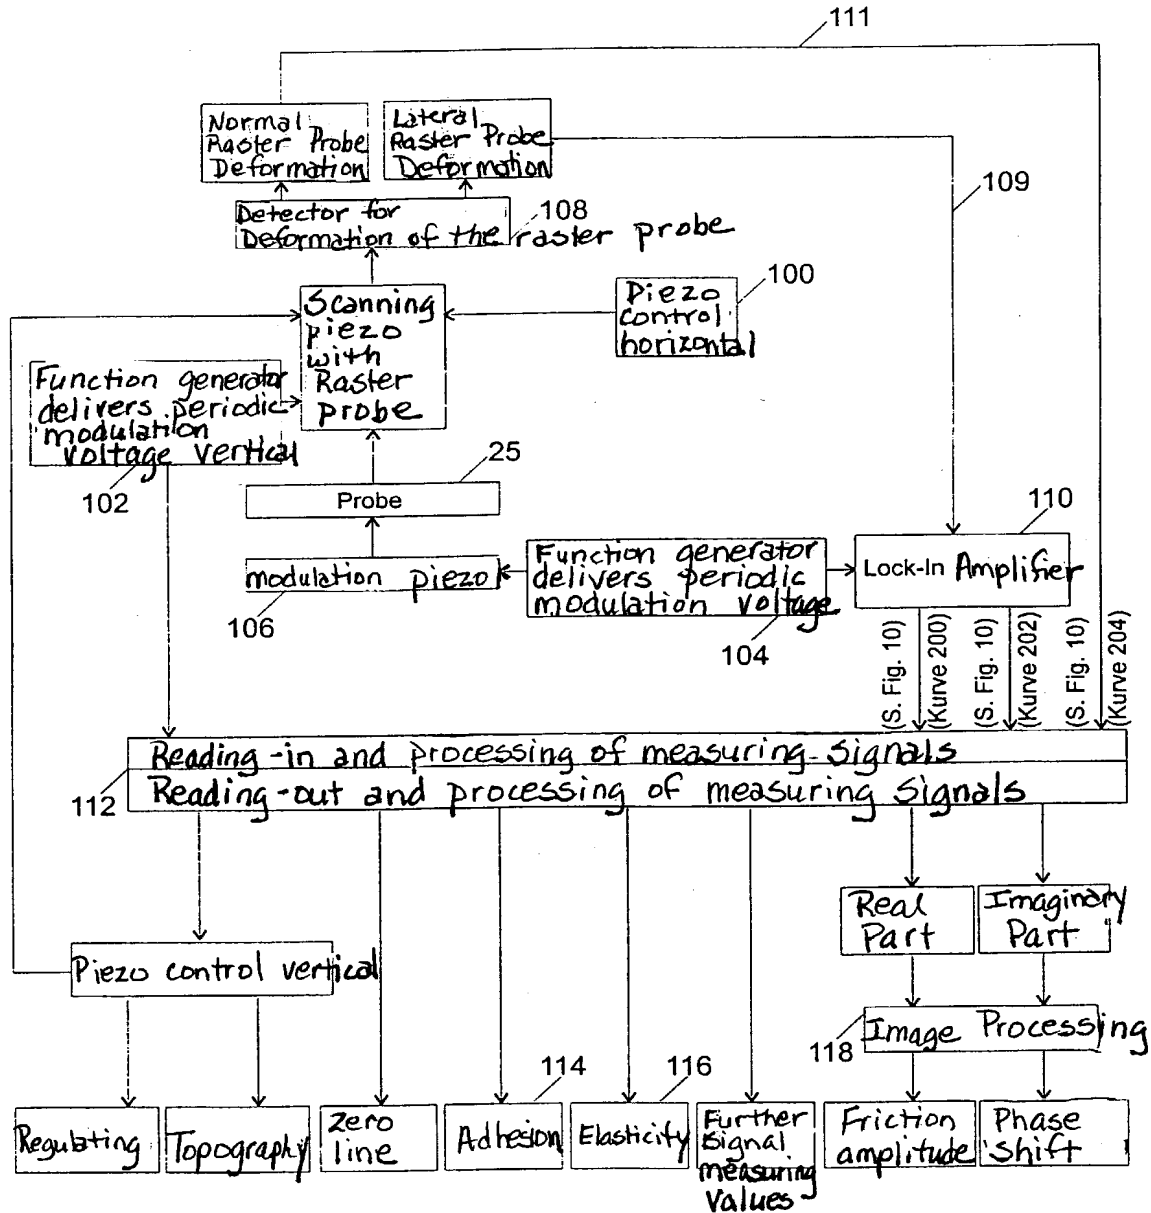 111
Normal
Raster Probe
Deformation
Lateral
Raster Probe
Deformation
109
Detector for
Deformation of the raster probe
108
100
Scanning
piezo
with
Raster
probe
Piezo
control
horizontal
Function generator
delivers periodic
modulation
voltage vertical
102
25
Probe
110
modulation piezo
106
Function generator
delivers periodic
modulation voltage
104
Lock-In Amplifier
(S. Fig. 10)
(Kurve 200)
(S. Fig. 10)
(Kurve 202)
(S. Fig. 10)
(Kurve 204)
Reading-in and processing of measuring signals
Reading-out and processing of measuring signals
112
Real
Part
Imaginary
Part
Piezo control vertical
Image Processing
118
114
116
Regulating
Topography
Zero
line
Adhesion
Elasticity
Further
Signal
measuring
values
Friction
amplitude
Phase
Shift